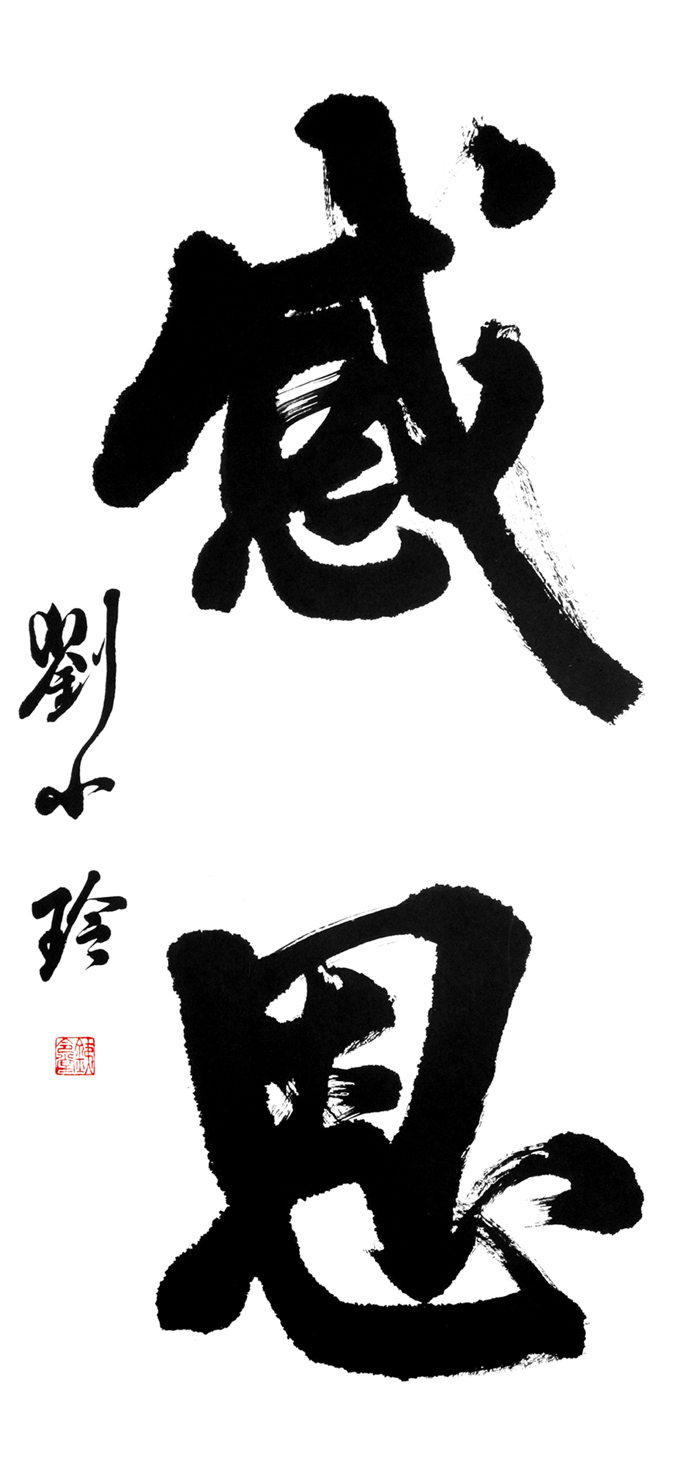 感恩
劉小玲